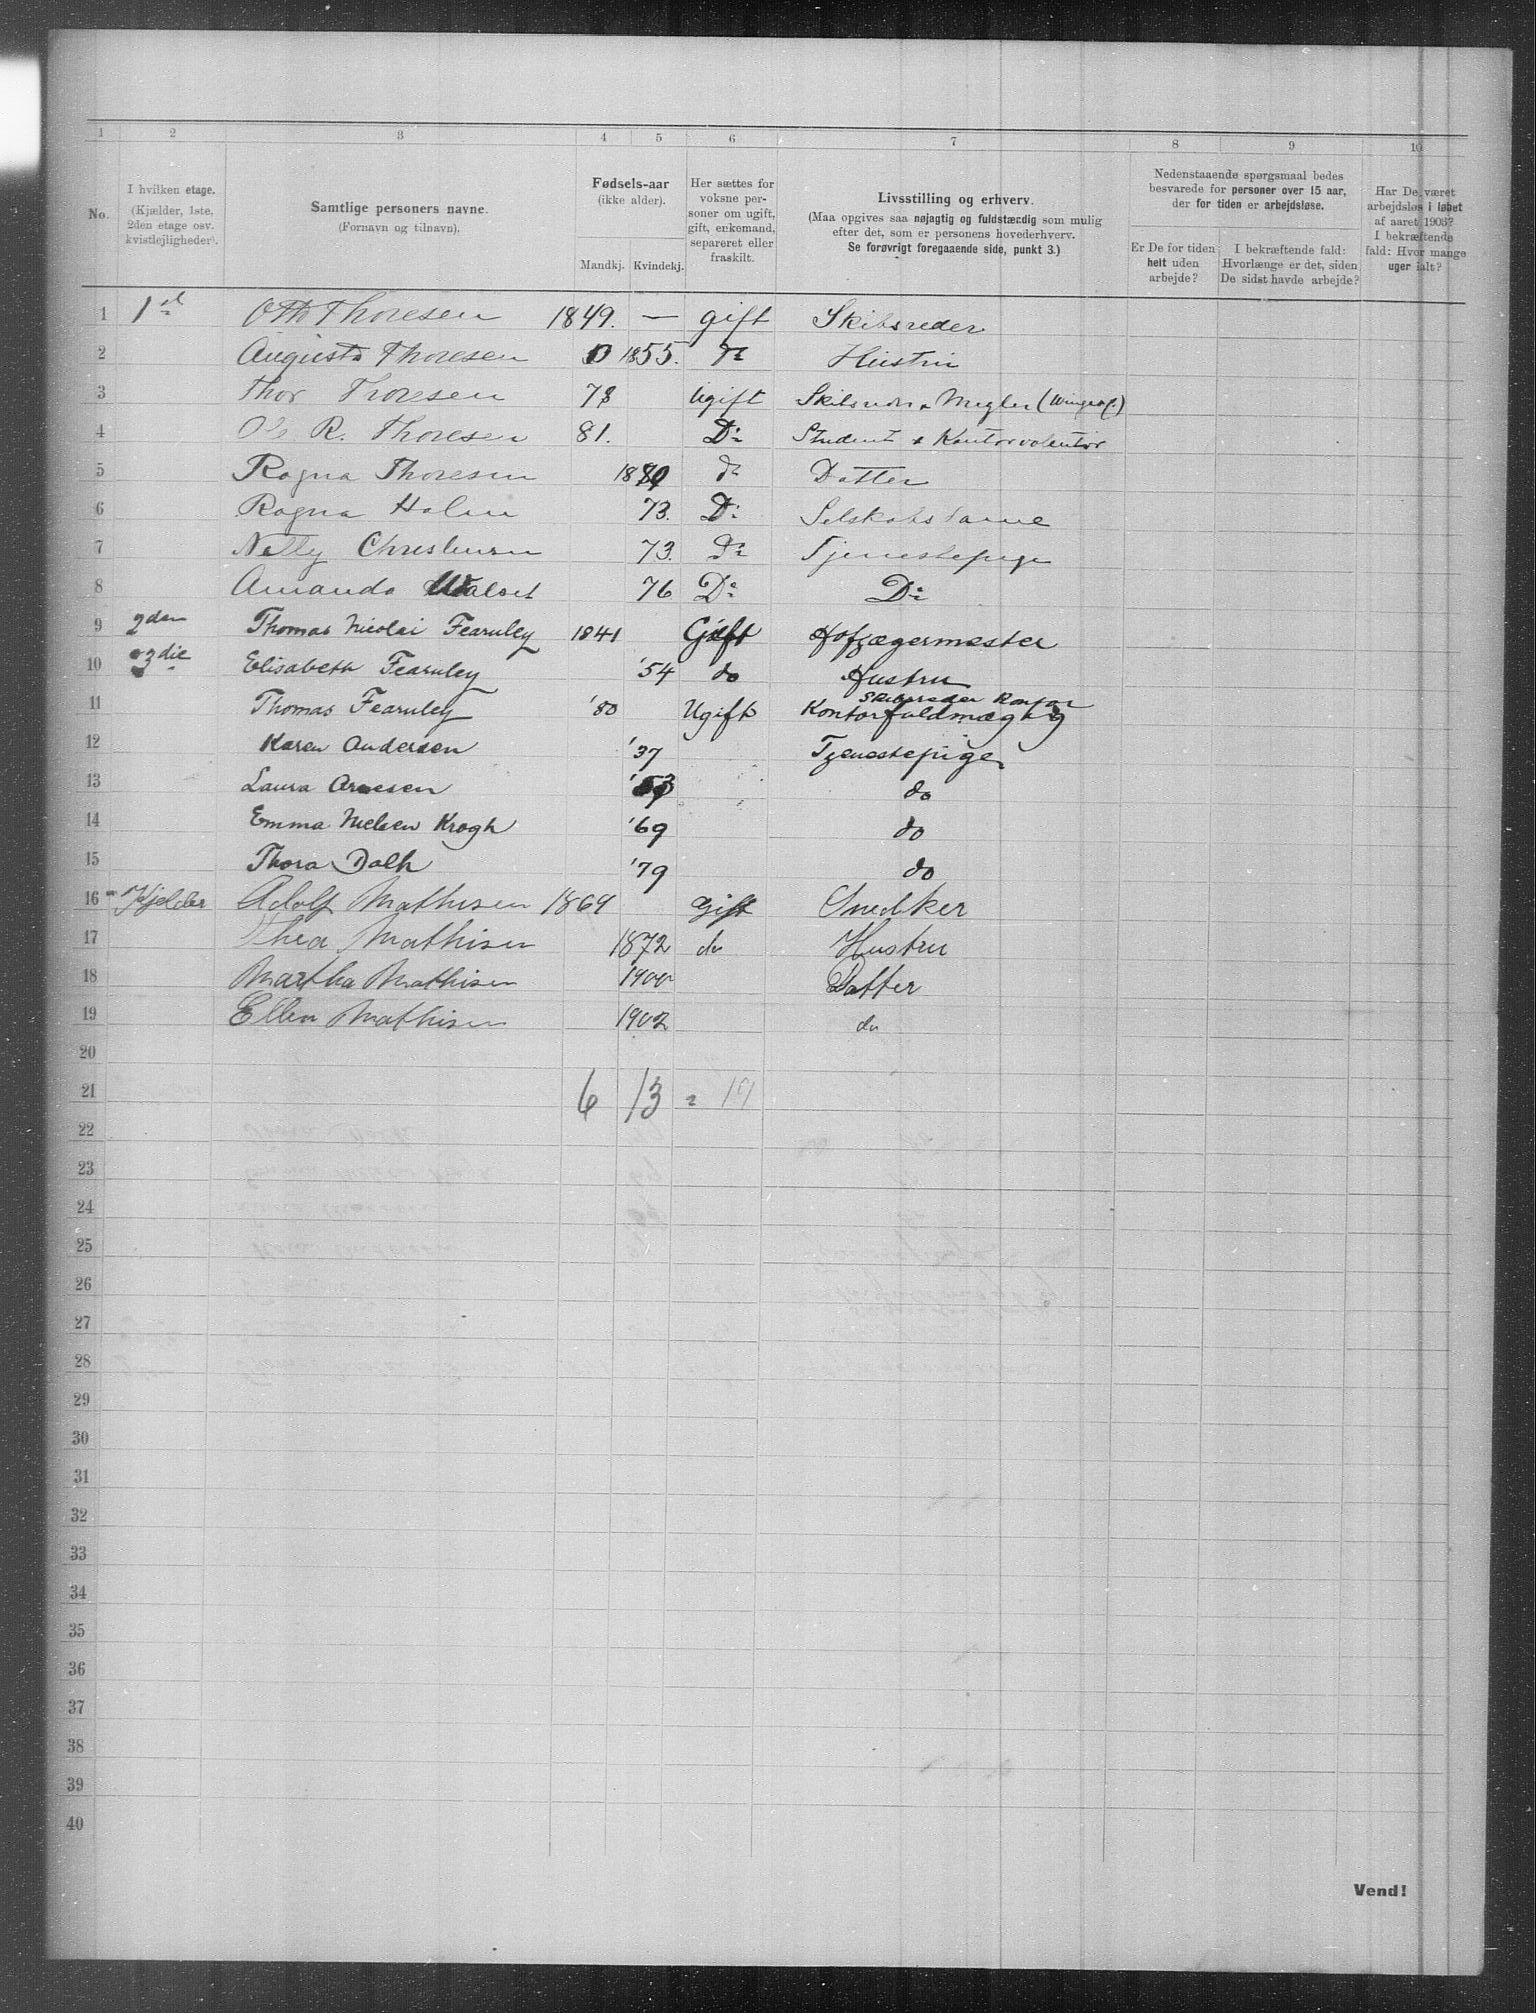 1 2 3 4 5 6 7 8 9 10
No.
I hvilken etage. (Kjælder, 1ste, 2den etage osv. kvistleiligheder).
Samtlige personers navne. (Fornavn og tilnavn).
Fødsels-aar (ikke alder). Mandkj. Kvindekj.
Her sættes for voksne personer om ugift, gift, enkemand, separeret eller fraskilt.
Livsstilling og erhverv. (Maa opgives saa nøjagtig og fuldstændig som mulig efter det, som er personens hovederhverv. Se forøvrigt foregaaende side, punkt 3.)
Nedenstaaende spørgsmaal bedes besvarede for personer over 15 aar, der for tiden er arbejdsløse.
Er De for tiden helt uden arbejde?
I bekræftende fald: Hvorlænge er det, siden De sidst havde arbejde?
Har De været arbejdsløs i løbet af aaret 1903? I bekræftende fald: Hvor mange uger ialt?
1 Otto Thoresen 1849. — gift Skibsreder
2 Augusta Thoresen 1855. Do Hustru
3 Thor Thoresen 78 Ugift Skibsreder & Megler
4 R. Thoresen 81. Do Student & Kontorvolentør
5 Ragna Thoresen do Datter
6 Ragna Holm 73. Do Selskabsdame
7 Nelly 73. Do Tjenestepige
8 Amanda 76 Do Do
9 2den Thomas Nicolai Fearnley 1841 Gift Hofjægermester
10 3die Elisabeth Fearnley '54 do Hustru
11 Thomas Fearnley '80 Ugift Skibsreder Kontor Kontorfuldmægtig
12 Karen Andersen '37 Tjenestepige
13 Laura do
14 Emma Nielsen Krogh '69 do
15 Thora Dalh '79 do
16 Kjelder Adolf Mathisen 1869 Gift Snedker
17 Thea Mathisen 1872 do Hustru
18 Martha Mathisen 1900 Datter
19 Ellen Mathisen 1902 do
20
21 6 13 = 19
22
23
24
25
26
27
28
29
30
31
32
33
34
35
36
37
38
39
40
Vend!